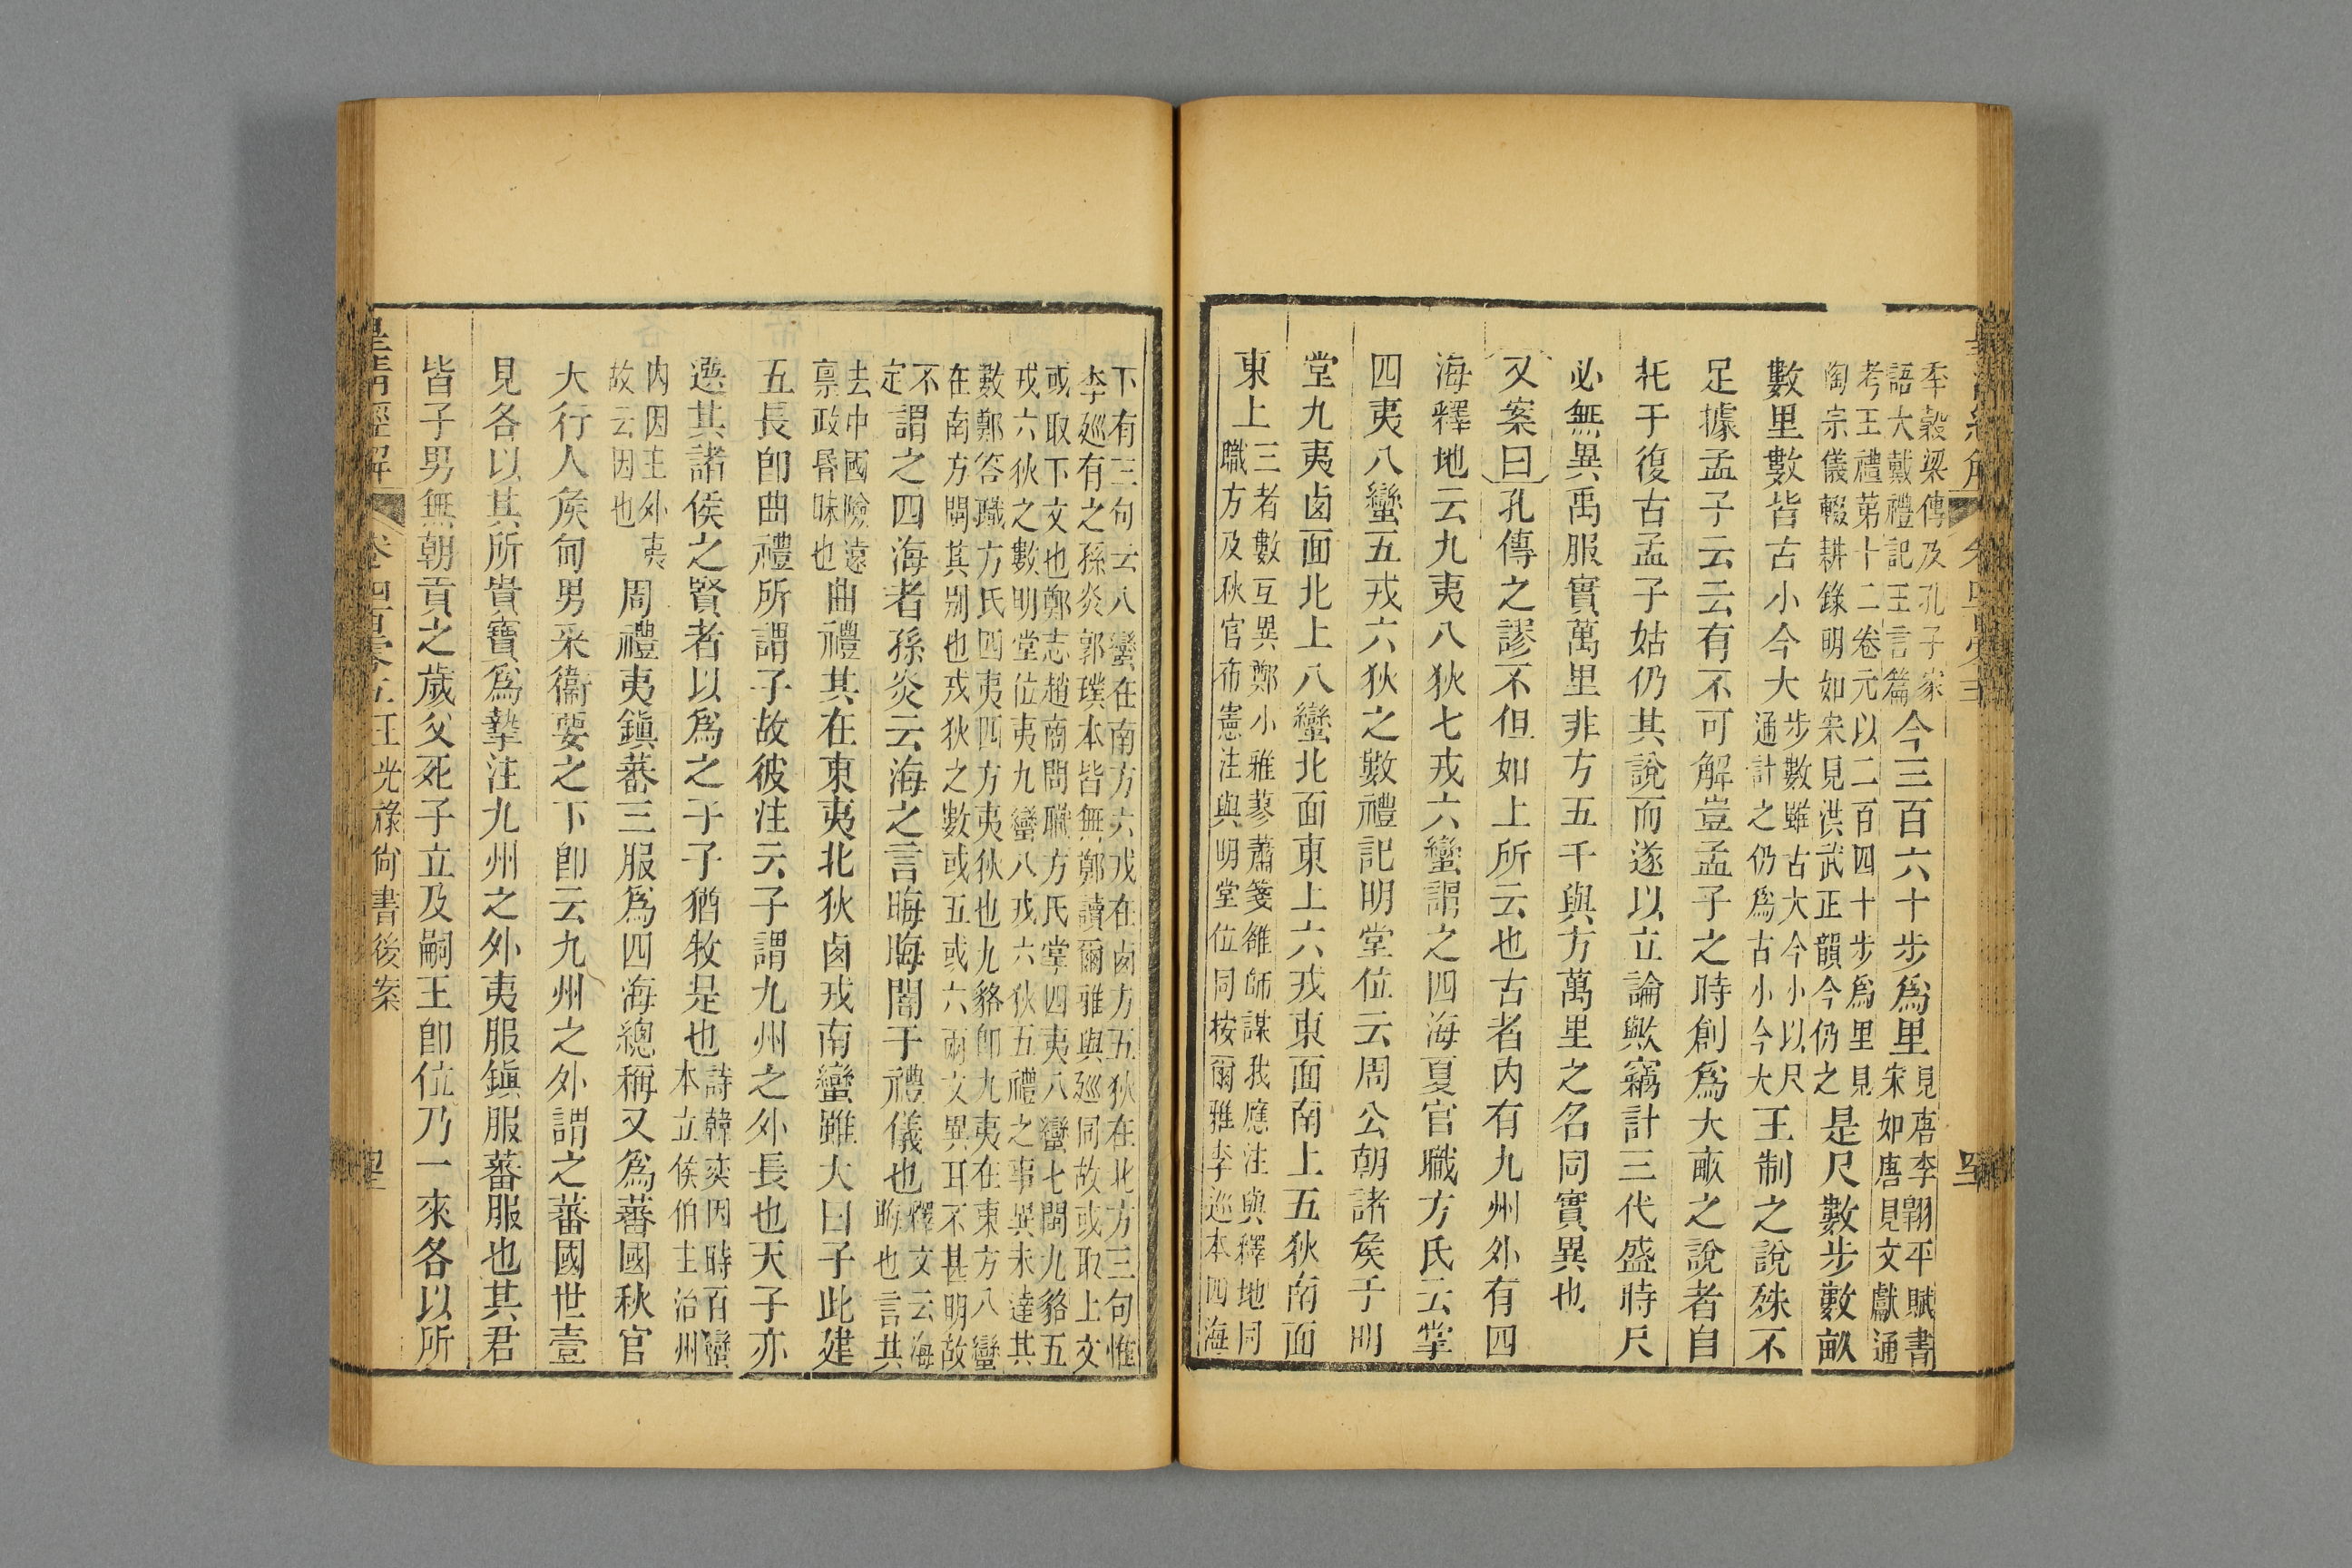 年穀梁傳及孔子家
語大戴禮記王言篇
今三百六十步爲里
見唐李翺平賦書
宋如唐見文獻通
考王禮第十二卷元以二百四十步爲里見
陶宗儀輟耕錄明如宋見洪武正韻今仍之
是尺數步數畝
數里數皆古小今大
步數雖古大今小以尺
通計之仍爲古小今大
王制之說殊不
足據孟子云云有不可解豈孟子之時創爲大畝之說者自
托于復古孟子姑仍其說而遂以立論歟竊計三代盛時尺
必無異禹服實萬里非方五千與方萬里之名同實異也
又案曰孔傳之謬不但如上所云也古者内有九州外有四
海釋地云九夷八狄七戎六蠻謂之四海夏官職方氏云掌
四夷八蠻五戎六狄之數禮記明堂位云周公朝諸矦于明
堂九夷卤面北上八蠻北面東上六戎東面南上五狄南面
東上
三者數互異鄭小雅蓼蕭箋雒師謀我應注與釋地同
職方及秋官布憲注與明堂位同桉爾雅李巡本四海
下有三句云八蠻在南方六戎在卤方五狄在北方三句惟
李廵有之孫炎郭璞本皆無鄭讀爾雅與廵同故或取上文
或取下文也鄭志趙商問職方氏掌四夷八蠻七閩九貉五
戎六狄之數明堂位夷九蠻八戎六狄五禮之事異未達其
數鄭答職方氏四夷四方夷狄也九貉卽九夷在東方八蠻
在南方閩其别也戎狄之數或五或六兩文異耳不甚明故
不
定
謂之四海者孫炎云海之言晦晦闇于禮儀也
釋文云海
晦也言其
去中國險遠
稟政昬昧也
曲禮其在東夷北狄卤戎南蠻雖大曰子此建
五長卽曲禮所謂子故彼注云子謂九州之外長也天子亦
選其諸侯之賢者以爲之子子猶牧是也
詩韓奕因時百蠻
本立侯伯主治州
内因主外夷
故云因也
周禮夷鎭蕃三服爲四海總稱又爲蕃國秋官
大行人矦甸男采衞要之下卽云九州之外謂之蕃國世壹
見各以其所貴寶爲摯注九州之外夷服鎭服蕃服也其君
皆子男無朝貢之歲父死子立及嗣王卽位乃一來各以所
皇清經解
卷四百零五王光祿尚書後案